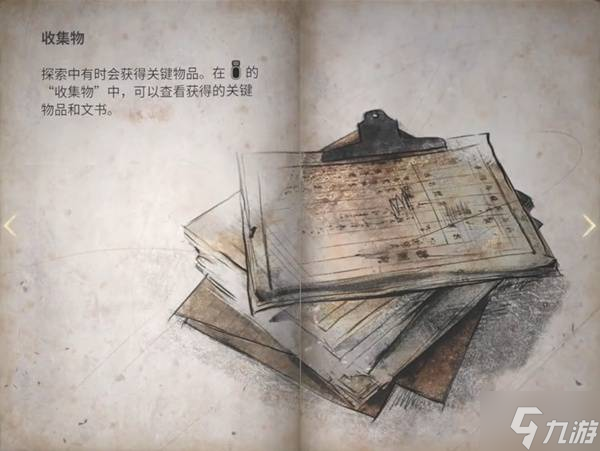 收集物
探索中有时会获得关键物品。在 的
“收集物”中，可以查看获得的关键
物品和文书。
九游